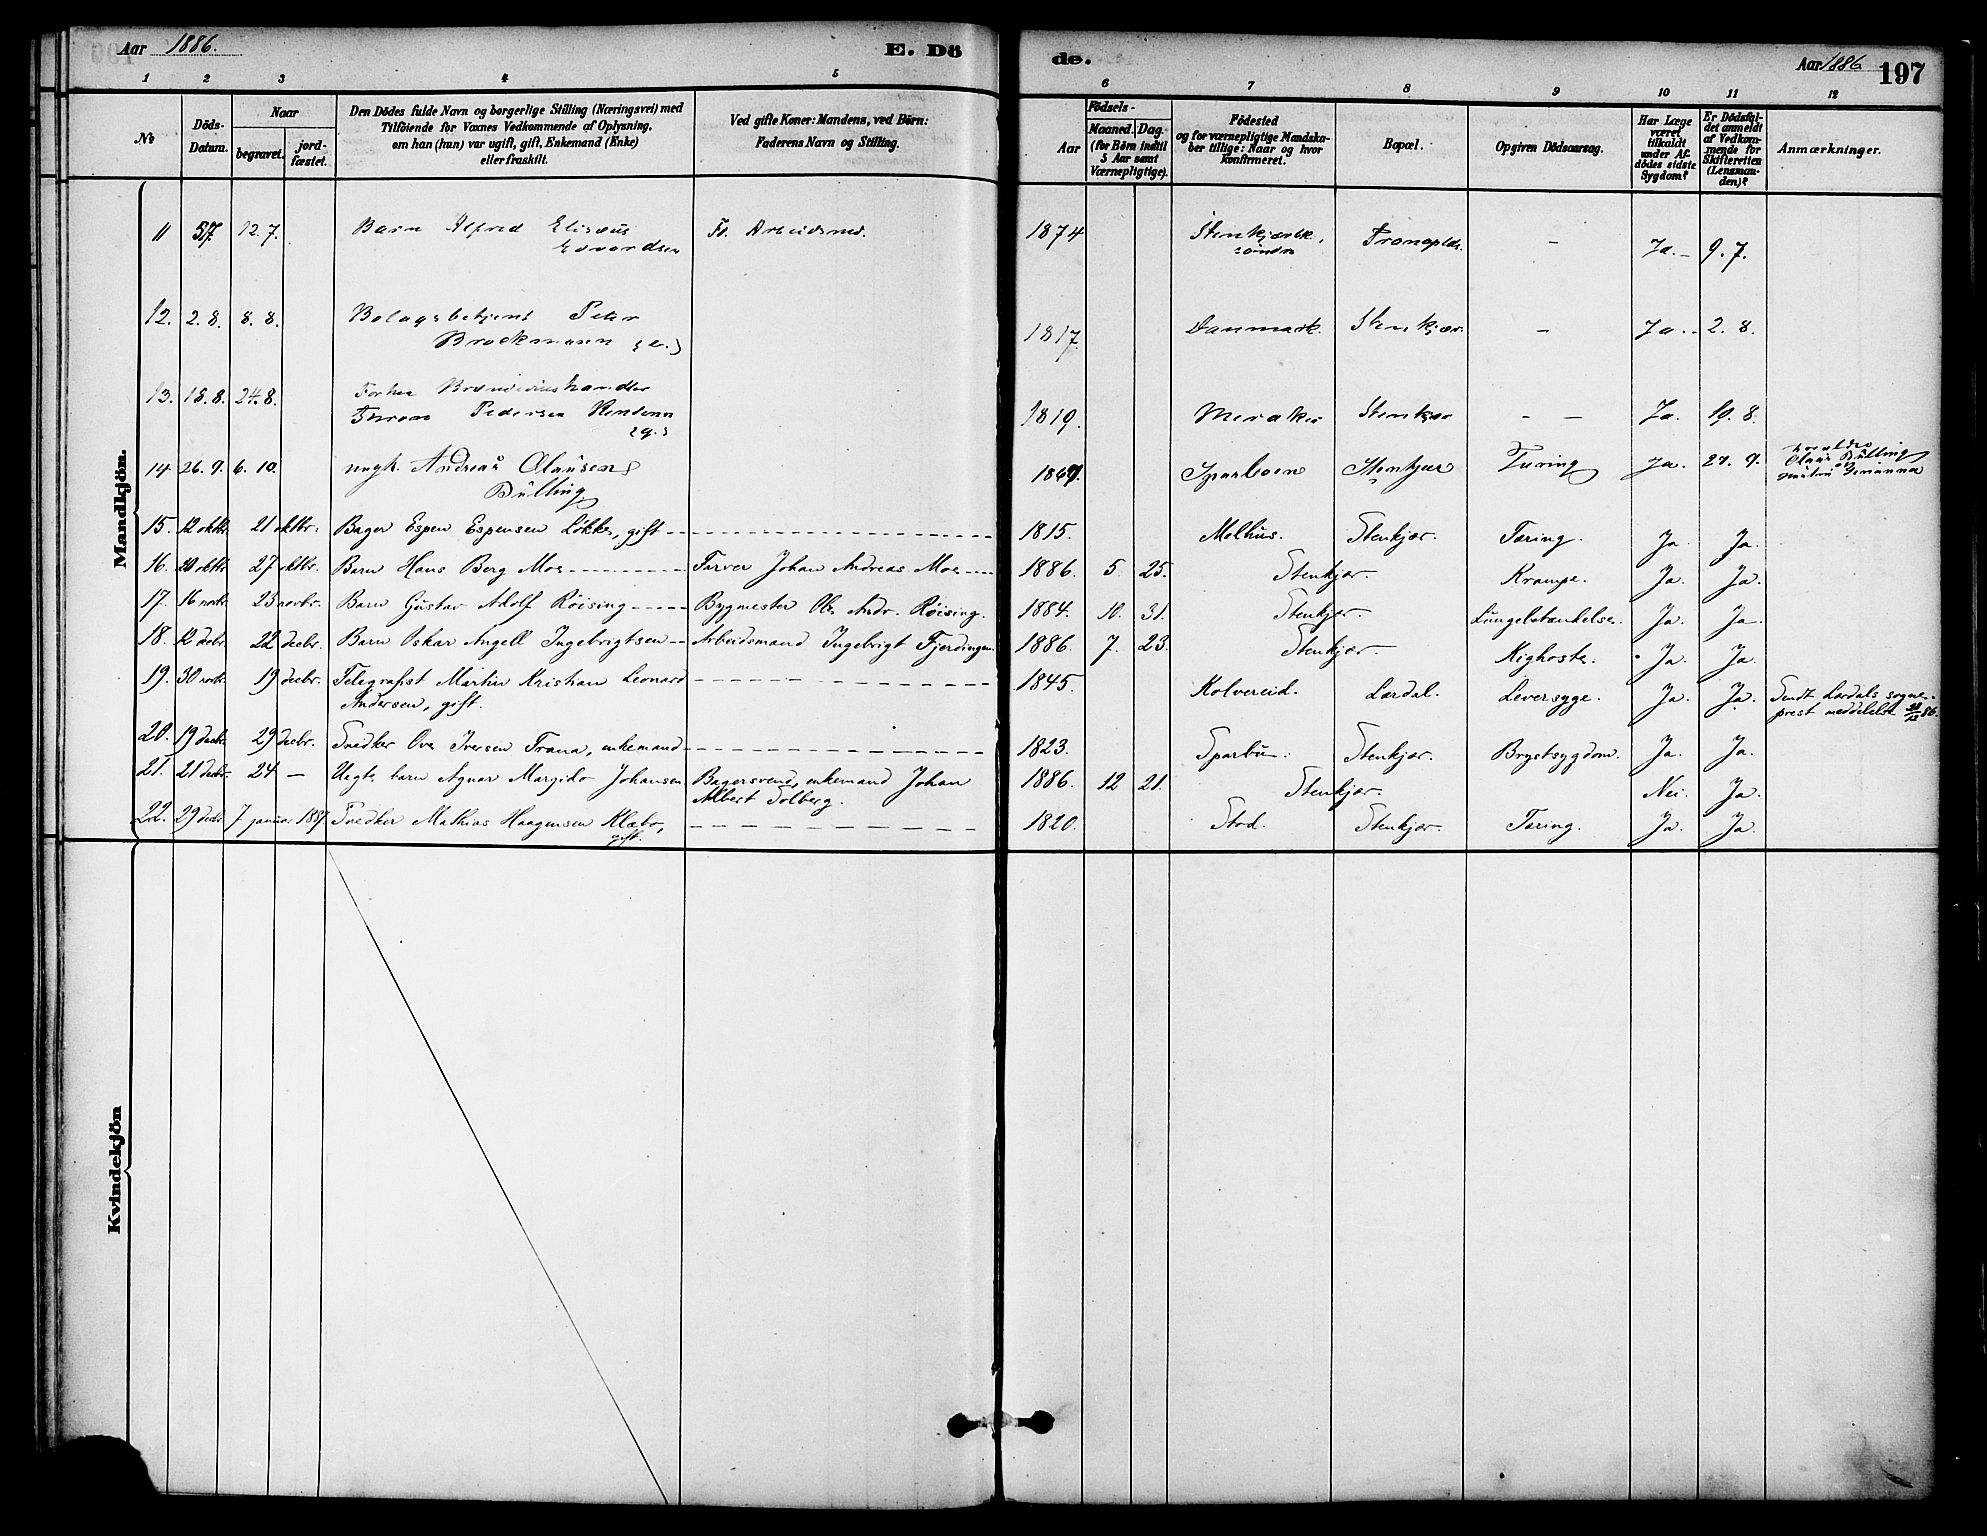 Aar 1886.
E. Dö
de.
Aar 1886
197
1 2 3 4 5 6 7 8 9 10 11 12
No
Döds-Datum.
Naar
begravet.
jord-fæstet.
Den Dödes fulde Navn og borgerlige Stilling (Næringsvei) med
Tilföiende for Voxnes Vedkommende af Oplysning,
om han (hun) var ugift, gift, Enkemand (Enke)
eller fraskilt.
Ved gifte Koner: Mandens, ved Börn:
Faderens Navn og Stilling.
Födsels-
Aar
Maaned.
Dag.
(for Börn indtil
5 Aar samt
Værnepligtige).
Födested
og for værnepligtige Mandska-
ber tillige: Naar og hvor
Konfirmeret.
Bopæl.
Opgiven Dödsaarsag.
Har Læge
været
tilkaldt
under Af-
dödes sidste
Sygdom?
Er Dödsfal-
det anmeldt
af Vedkom-
mende for
Skifteretten
(Lensman-
den)?
Anmærkninger.
Mandkjön.
11 5/7 12.7. Barn Alfred Elisæus Fa. Arbeidsmd. 1874 Ja. 9.7.
Edvardsen søndre
12. 2.8. 8.8. Peter 1817. Danmark. Stenkjær. – Ja. 2.8.
Brockmann
13. 18.8. 24.8. Forhen Brændevinshandler
Pedersen 1819. Meraker Stenkjær – – Ja. 19.8.
14 26.9. 6.10. ungk. Andreas Olausen 1869. Sparboen Stenkjær Tæring Ja. 27.9. Olaus Bülling
Bülling
15. 12 oktbr. 21 oktbr. Bager Espen Espensen Løkke, gift 1815. Melhus. Stenkjær. Tæring. Ja Ja.
16. 20 oktbr. 27 oktbr. Barn Hans Berg Moe Farver Johan Andreas Moe 1886. 5. 25. Stenkjær. Krampe. Ja. Ja.
17. 16 novbr. 23 novbr. Barn Gustav Adolf Røising Bygmester Ole Andr. Røising. 1884. 10. 31. Stenkjær. Lungebetændelse. Ja. Ja.
18. 12 decbr. 22 decbr. Barn Oskar Angell Ingebrigtsen Arbeidsmand Ingebrigt Fjerdingen. 1886. 7. 23. Stenkjær. Kighoste. Ja. Ja.
19. 30 novbr. 19 decbr. Telegrafist Martin Kristian Leonard 1845. Kolvereid. Lærdal. Leversyge. Ja. Ja. Sendt Lærdals sogne-
Andersen, gift. prest meddelelse 86.
20. 19 decbr. 29 decbr. Snedker Ove Iversen Trana, enkemand 1823. Sparbu. Stenkjær. Brystsygdom. Ja. Ja.
21. 21 decbr. 24 – Uegte barn Agnar Margido Johansen Bagersvend, enkemand Johan 1886. 12 21. Stenkjær. Nei. Ja.
Albert Solberg.
22. 29 decbr. 7 januar 1887 Snedker Mathias Haagensen Klæbo, 1820. Stod. Stenkjær. Tæring. Ja. Ja.
gift.
Kvindekjön